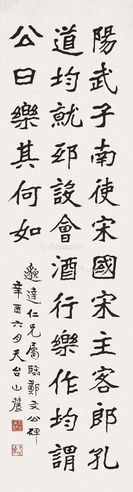 陽武子南使宋國宋主客郎孔
道均就邳設會酒行樂作均謂
公曰樂其何如
達仁兄屬臨鄭文公碑
辛酉六月天台山農